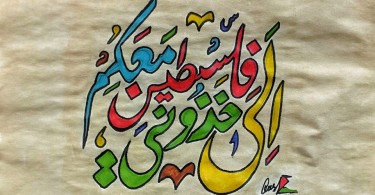 إلى فلسطين خذوني معكم